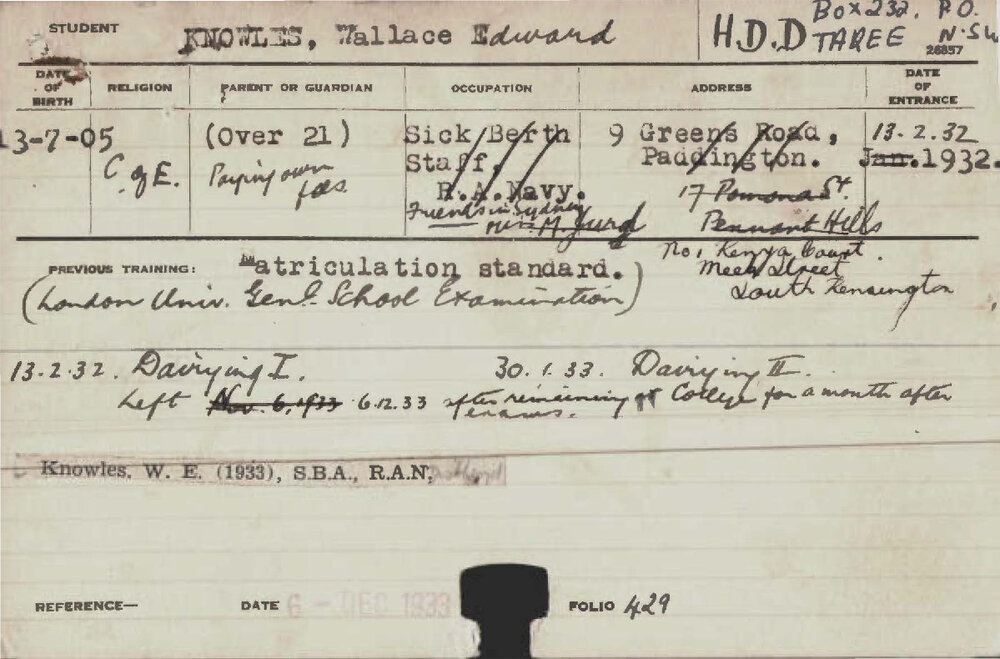 STUDENT KNOWLES, Wallace Edward H.D.D Box 232. P.O.
TAREE N.SW
26857
DATE OF BIRTH RELIGION PARENT OR GUARDIAN OCCUPATION ADDRESS DATE OF ENTRANCE
13-7-05 (Over 21) Sick Berth 9 Greens Road, 13.2.32
C of E. Paying own fees. Staff, Paddington. Jan. 1932.
R.A.Navy. 17 Pomona St.
Friends in Sydney Pennant Hills
Miss M. Jurd
No 1 Kenya Court.
PREVIOUS TRAINING: Matriculation standard. Meek Street
(London Univ. Genl. School Examination) South Kensington
13.2.32. Dairying I. 30.1.33. Dairying II.
Left Nov. 6, 1933 6.12.33 after remaining at College for a month after
exams.
Knowles, W. E. (1933), S.B.A., R.A.N.
REFERENCE— DATE 6 - DEC 1933 FOLIO 429